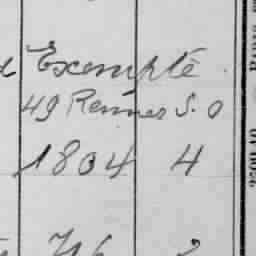 Exempté
49 Rennes S. O
1804 4